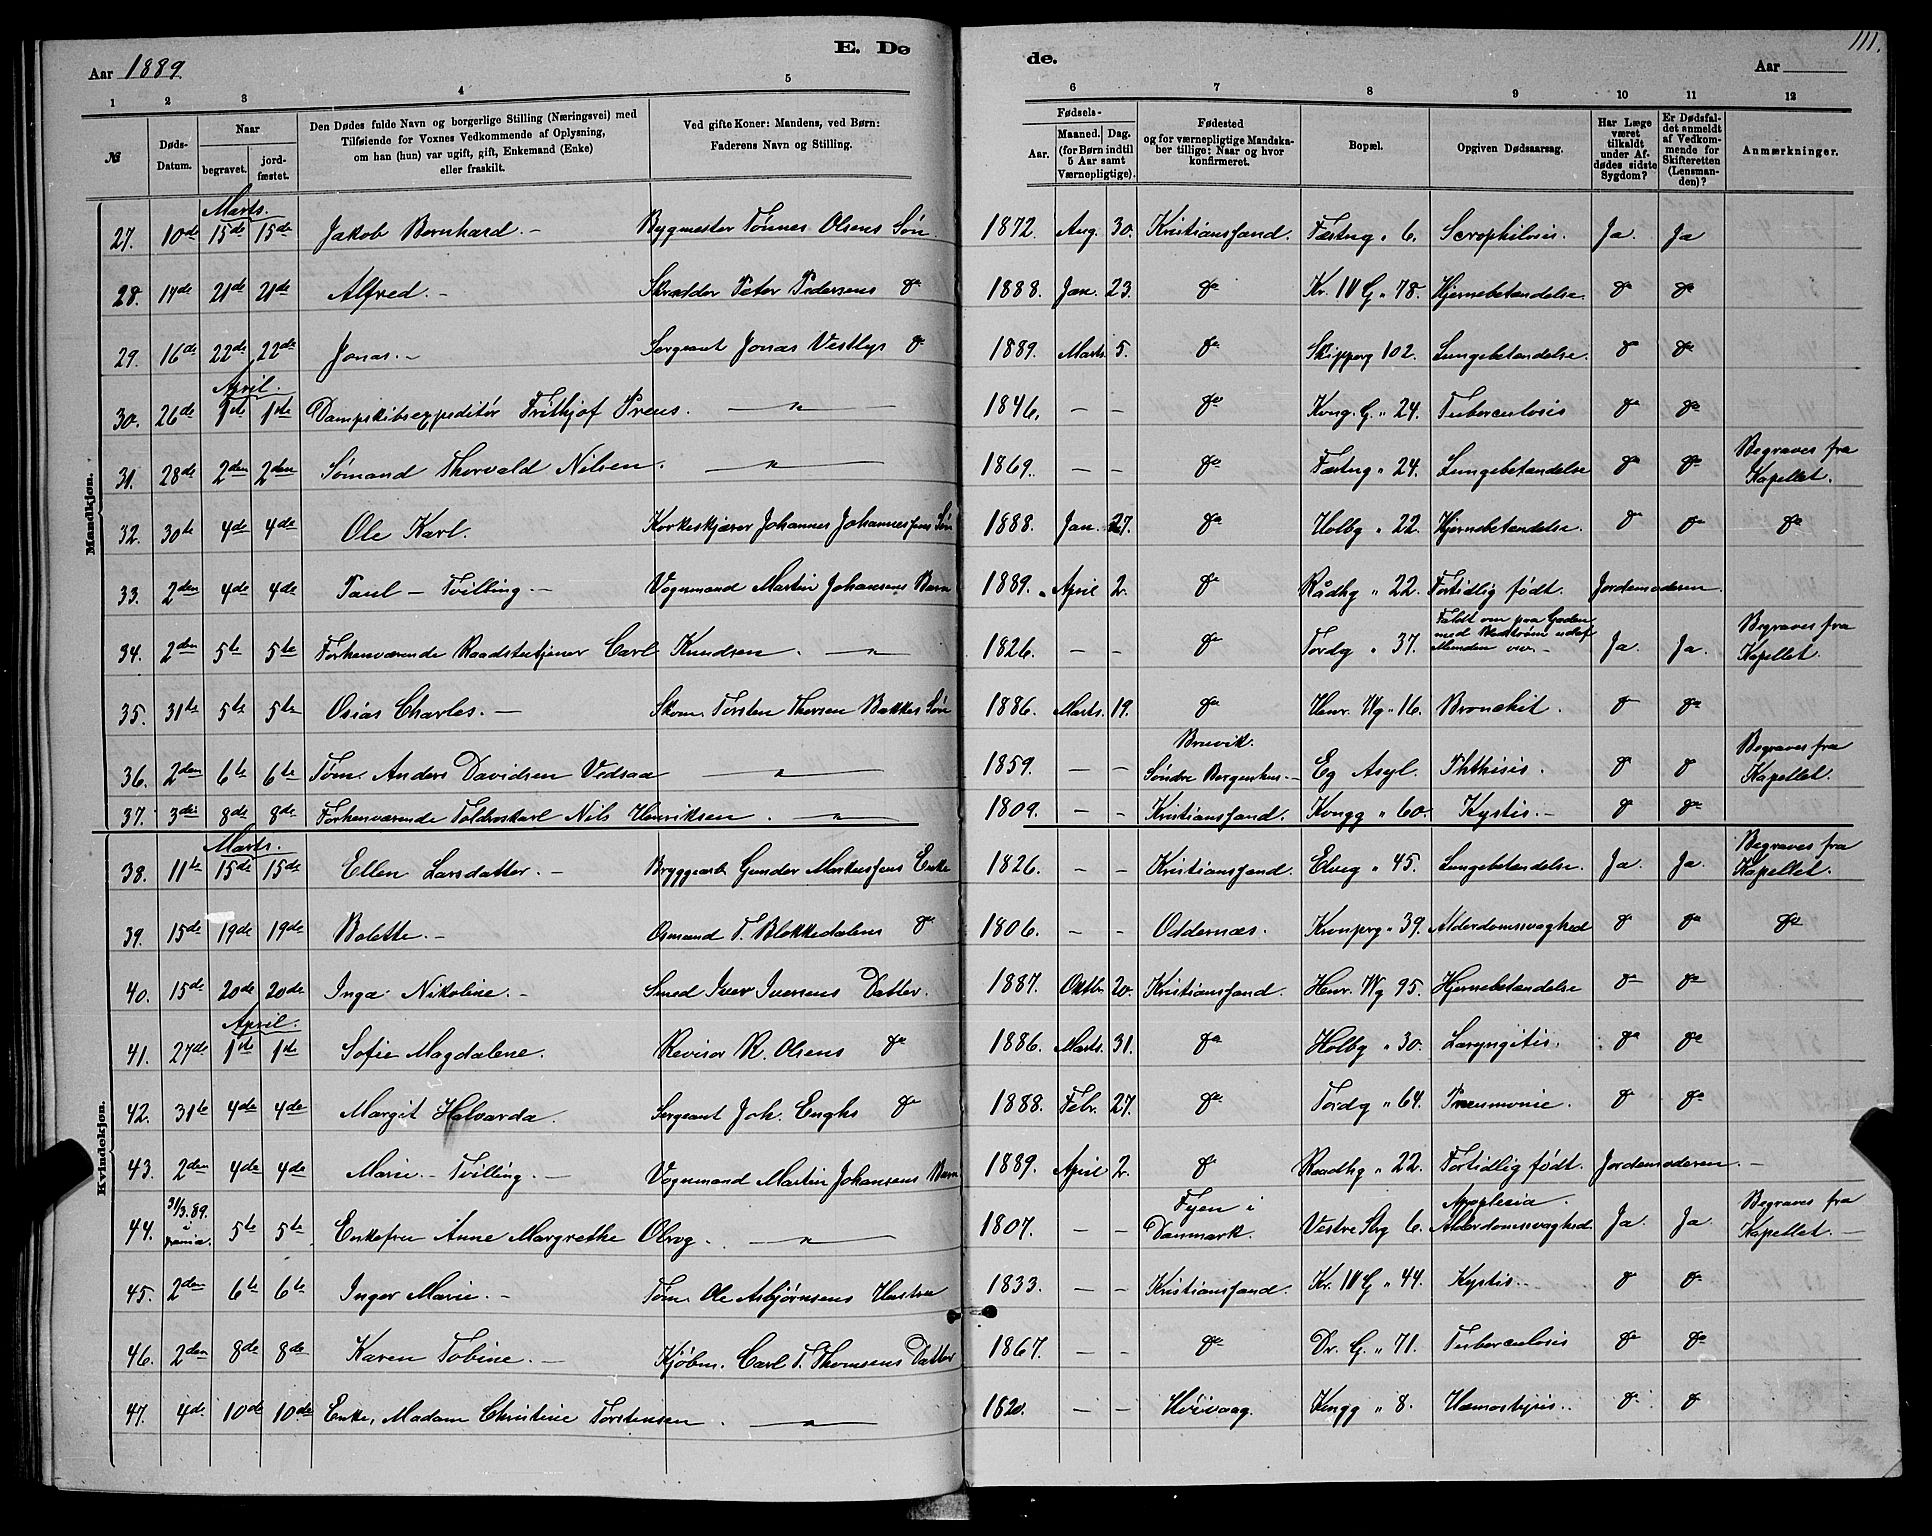 E. Døde.
111.
Aar 1889
Aar
1 2 3 4 5 6 7 8 9 10 11 12
№
Døds-Datum.
Naar
begravet.
jord-fæstet.
Den Dødes fulde Navn og borgerlige Stilling (Næringsvei) med
Tilføiende for Voxnes Vedkommende af Oplysning,
om han (hun) var ugift, gift, Enkemand (Enke)
eller fraskilt.
Ved gifte Koner: Mandens, ved Børn:
Faderens Navn og Stilling.
Fødsels-
Aar.
Maaned. Dag.
(for Børn indtil
5 Aar samt
Værnepligtige).
Fødested
og for værnepligtige Mandska-
ber tillige: Naar og hvor
konfirmeret.
Bopæl.
Opgiven Dødsaarsag.
Har Læge
været
tilkaldt
under Af-
dødes sidste
Sygdom?
Er Dødsfal-
det anmeldt
af Vedkom-
mende for
Skifteretten
(Lensman-
den)?
Anmærkninger.
Mandkjøn.
Marts.
27. 10de 15de 15de Jakob Bernhard. – Bygmester Tønnes Olsens Søn. 1872. Aug. 30. Kristianssand. Fæstng „ 6. Scrophilosis. Ja. Ja
28. 14de 21de 21de Alfred. – Skrædder Peter Pedersens do 1888. Jan. 23. do Kr. IV G. „ 78. Hjernebetændelse. do do
29. 16de 22de 22de Jonas. – Sergeant Jonas Vestbys do 1889. Marts. 5. do Skipperg 102. Lungebetændelse. do do
April.
30. 26de 1ste 1ste Dampskibsexpeditør Frithjof Preus. – „ – 1846. – – do Kong. G. „ 24. Tuberculosis do do
31. 28de 2den 2den Sømand Thorvald Nilsen. – „ – 1869. – – do Fæstng „ 24. Lungebetændelse do do Begraves fra Kapellet.
32. 30te 4de 4de Ole Karl. Korkeskjærer Johannes Johannessens Søn 1888. Jan. 27. do Holbg „ 22. Hjernebetændelse. do do do
33. 2den 4de 4de Paul – Tvilling. – Vognmand Martin Johansens Barn 1889. April 2. do Rådhg „ 22. Fortidlig født. Jordemoderen.
34. 2den 5te 5te Forhenværende Raadstutjener Carl Knudsen. – „ – 1826. – – do Tordg „ 37. Faldt om paa Gaden med Blodstrøm ud af Munden Ja. Ja. Begraves fra Kapellet.
35. 31te 5te 5te Osias Charles. – Skom. Torsten Thorsen Bakkes Søn 1886. Marts. 19. do Henr. Wg „ 16. Bronchit. do do
36. 2den 6te 6te Tøm. Anders Davidsen Vedsaa – „ – 1859. – – Bruvik. Søndre Bergenhus. – Eg Asyl. Phthisis. do do Begraves fra Kapellet.
37. 3die 8de 8de Forhenværende Toldroskarl Nils Henriksen. – „ – 1809. – – Kristianssand. Kongg „ 60. Kystis. – do do
Kvindekjøn.
Marts.
38. 11te 15de 15de Ellen Larsdatter. – Bryggearb. Gunder Markussens Enke 1826. – – Kristianssand. Elveg „ 45. Lungebetændelse. Ja. Ja. Begraves fra Kapellet.
39. 15de 19de 19de Bolette. – Osmund T. Blokkedalens do 1806. – – Oddernæs. Kronprg „ 39. Alderdomssvaghed do do do
40. 15de 20de 20de Inga Nikoline. – Smed Iver Iversens Datter. 1887. Oktbr. 20. Kristianssand. Henr. Wg 95. Hjernebetændelse do do
April.
41. 27de 1ste 1ste Sofie Magdalene. Revisor R. Olsens do 1886. Marts. 31. do Holbg „ 30. Laryngitis. do do
42. 31te 4de 4de Margit Halvarda. Sergeant Joh. Enghs do 1888. Febr. 27. do Tordg „ 64. Pneumonie. do do
43. 2den 4de 4de Marie – Tvilling. – Vognmand Martin Johansens Barn 1889. April 2. do Raadhg „ 22. Fortidlig født. Jordemoderen. –
44. 31/3.89. i 5te 5te Enkefru Anne Margrethe Olrog. – „ – 1807. – – Fyen i Danmark. Vestre Strg 6. Apoplesia. Alderdomssvaghed. Ja. Ja. Begraves fra Kapellet. –
45. 2den 6te 6te Inger Marie. – Tøm. Ole Asbjørnsens Hustru 1833. – – Kristianssand. Kr. IV G „ 44. Kystis. – do do
46. 2den 8de 8de Karen Tobine. – Kjøbm. Carl T. Thomsens Datter 1867. – – do Dr. G. „ 71. Tuberculosis do do
47. 4de 10de 10de Enke, Madam Christine Torstensen. – „ – 1820. – – Høivaag. Kongg „ 8. Hæmostysis. do do